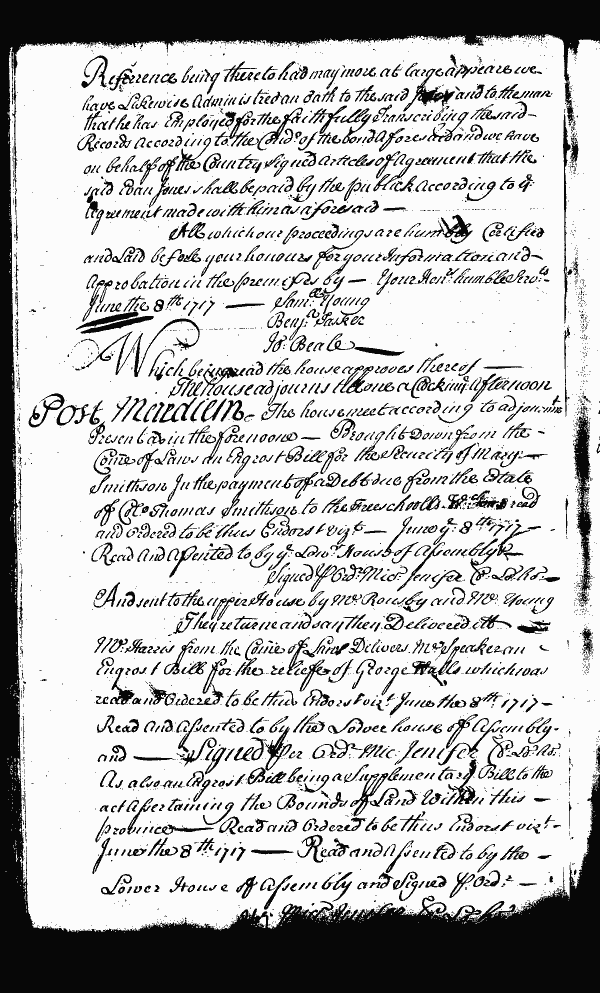 Reference being thereto had may more at large appeare we
have Likewise Administred an Oath to the said and to the man
that he has Employed for the faithfully Transcribing the said
Records According to the Cond.o of the bond Aforesaid and we have
on behalf of the Country signed Articles of Agreement that the
said Evan Jones shall be paid by the publick According to ye
Agreement made with him as aforesaid —
All which our proceedings are humbly Certified
and Laid before your honours for your Information and
Approbation in the premises by — Your Hon.rs humble Serv.ts
June the 8th 1717 — Sam.ll Young
Benj.a Tasker
Jo Beale —
Which being read the house approves thereof —
The house adjourns till one a Clock in ye Afternoon
Post Meridiem. The house meet according to adjournm.t
Present as in the forenoone — Brought Down from the
Com.ee of Laws an Engrost Bill for the Security of Mary
Smithson In the payment of a Debt due from the Estate
of Coll.o Thomas Smithson to the Free schools. read
and Ordered to be thus Endorst viz.t — June ye 8th 1717 —
Read And Assented to by ye Low.r House of Assembly
Signed P Ord.r Mic.l Jenifer Cl. Lo. Ho.
And sent to the upper House by Mr. Rousby and Mr. Young
They returne and say they Delivered itt
Mr. Harris from the Com.ee of Laws Delivers Mr. Speaker an
Engrost Bill for the reliefe of George Walls which was
read and Ordered to be thus Endorst viz.t June the 8th 1717 —
Read And Assented to by the Lodwer house of Assembly
and — Signed Per Ord.r Mic Jenifer Cl. Lo. Ho.
As also an Engrost Bill being a Supplementary Bill to the
act Assertaining the Bounds of Land Within this —
province — Read and Ordered to be thus Endorst viz.t
June the 8th 1717 — Read and Assented to by the —
Lower House of Assembly and Signed P. Ord.r —
Mic.l Jenifer Cl. Lo. Ho.